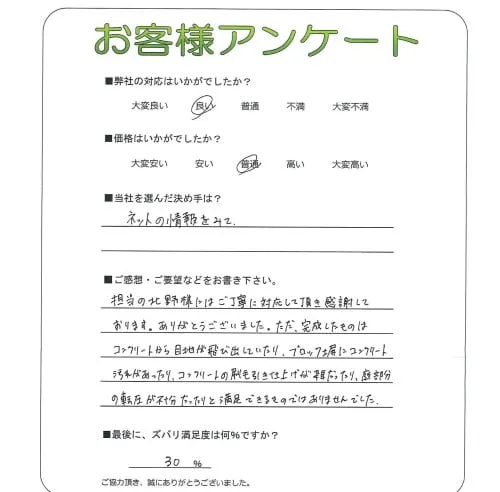 お客様アンケート
■弊社の対応はいかがでしたか?
大変良い 良い 普通 不満 大変不満
■価格はいかがでしたか?
大変安い 安い 普通 高い 大変高い
■当社を選んだ決め手は?
ネットの情報をみて.
■ご感想・ご要望などをお書き下さい。
担当の北野様にはご丁寧に対応して頂き感謝して
おります。ありがとうございました。ただ、完成したものは
コンクリートから目地が飛び出していたり、ブロック塀にコンクリート
汚れがあったり、コンクリートの刷毛引き仕上げが雑だったり、庭部分
の転圧が不十分だったりと満足できるものではありませんでした.
■最後に、ズバリ満足度は何%ですか?
30 %
ご協力頂き、誠にありがとうございました。